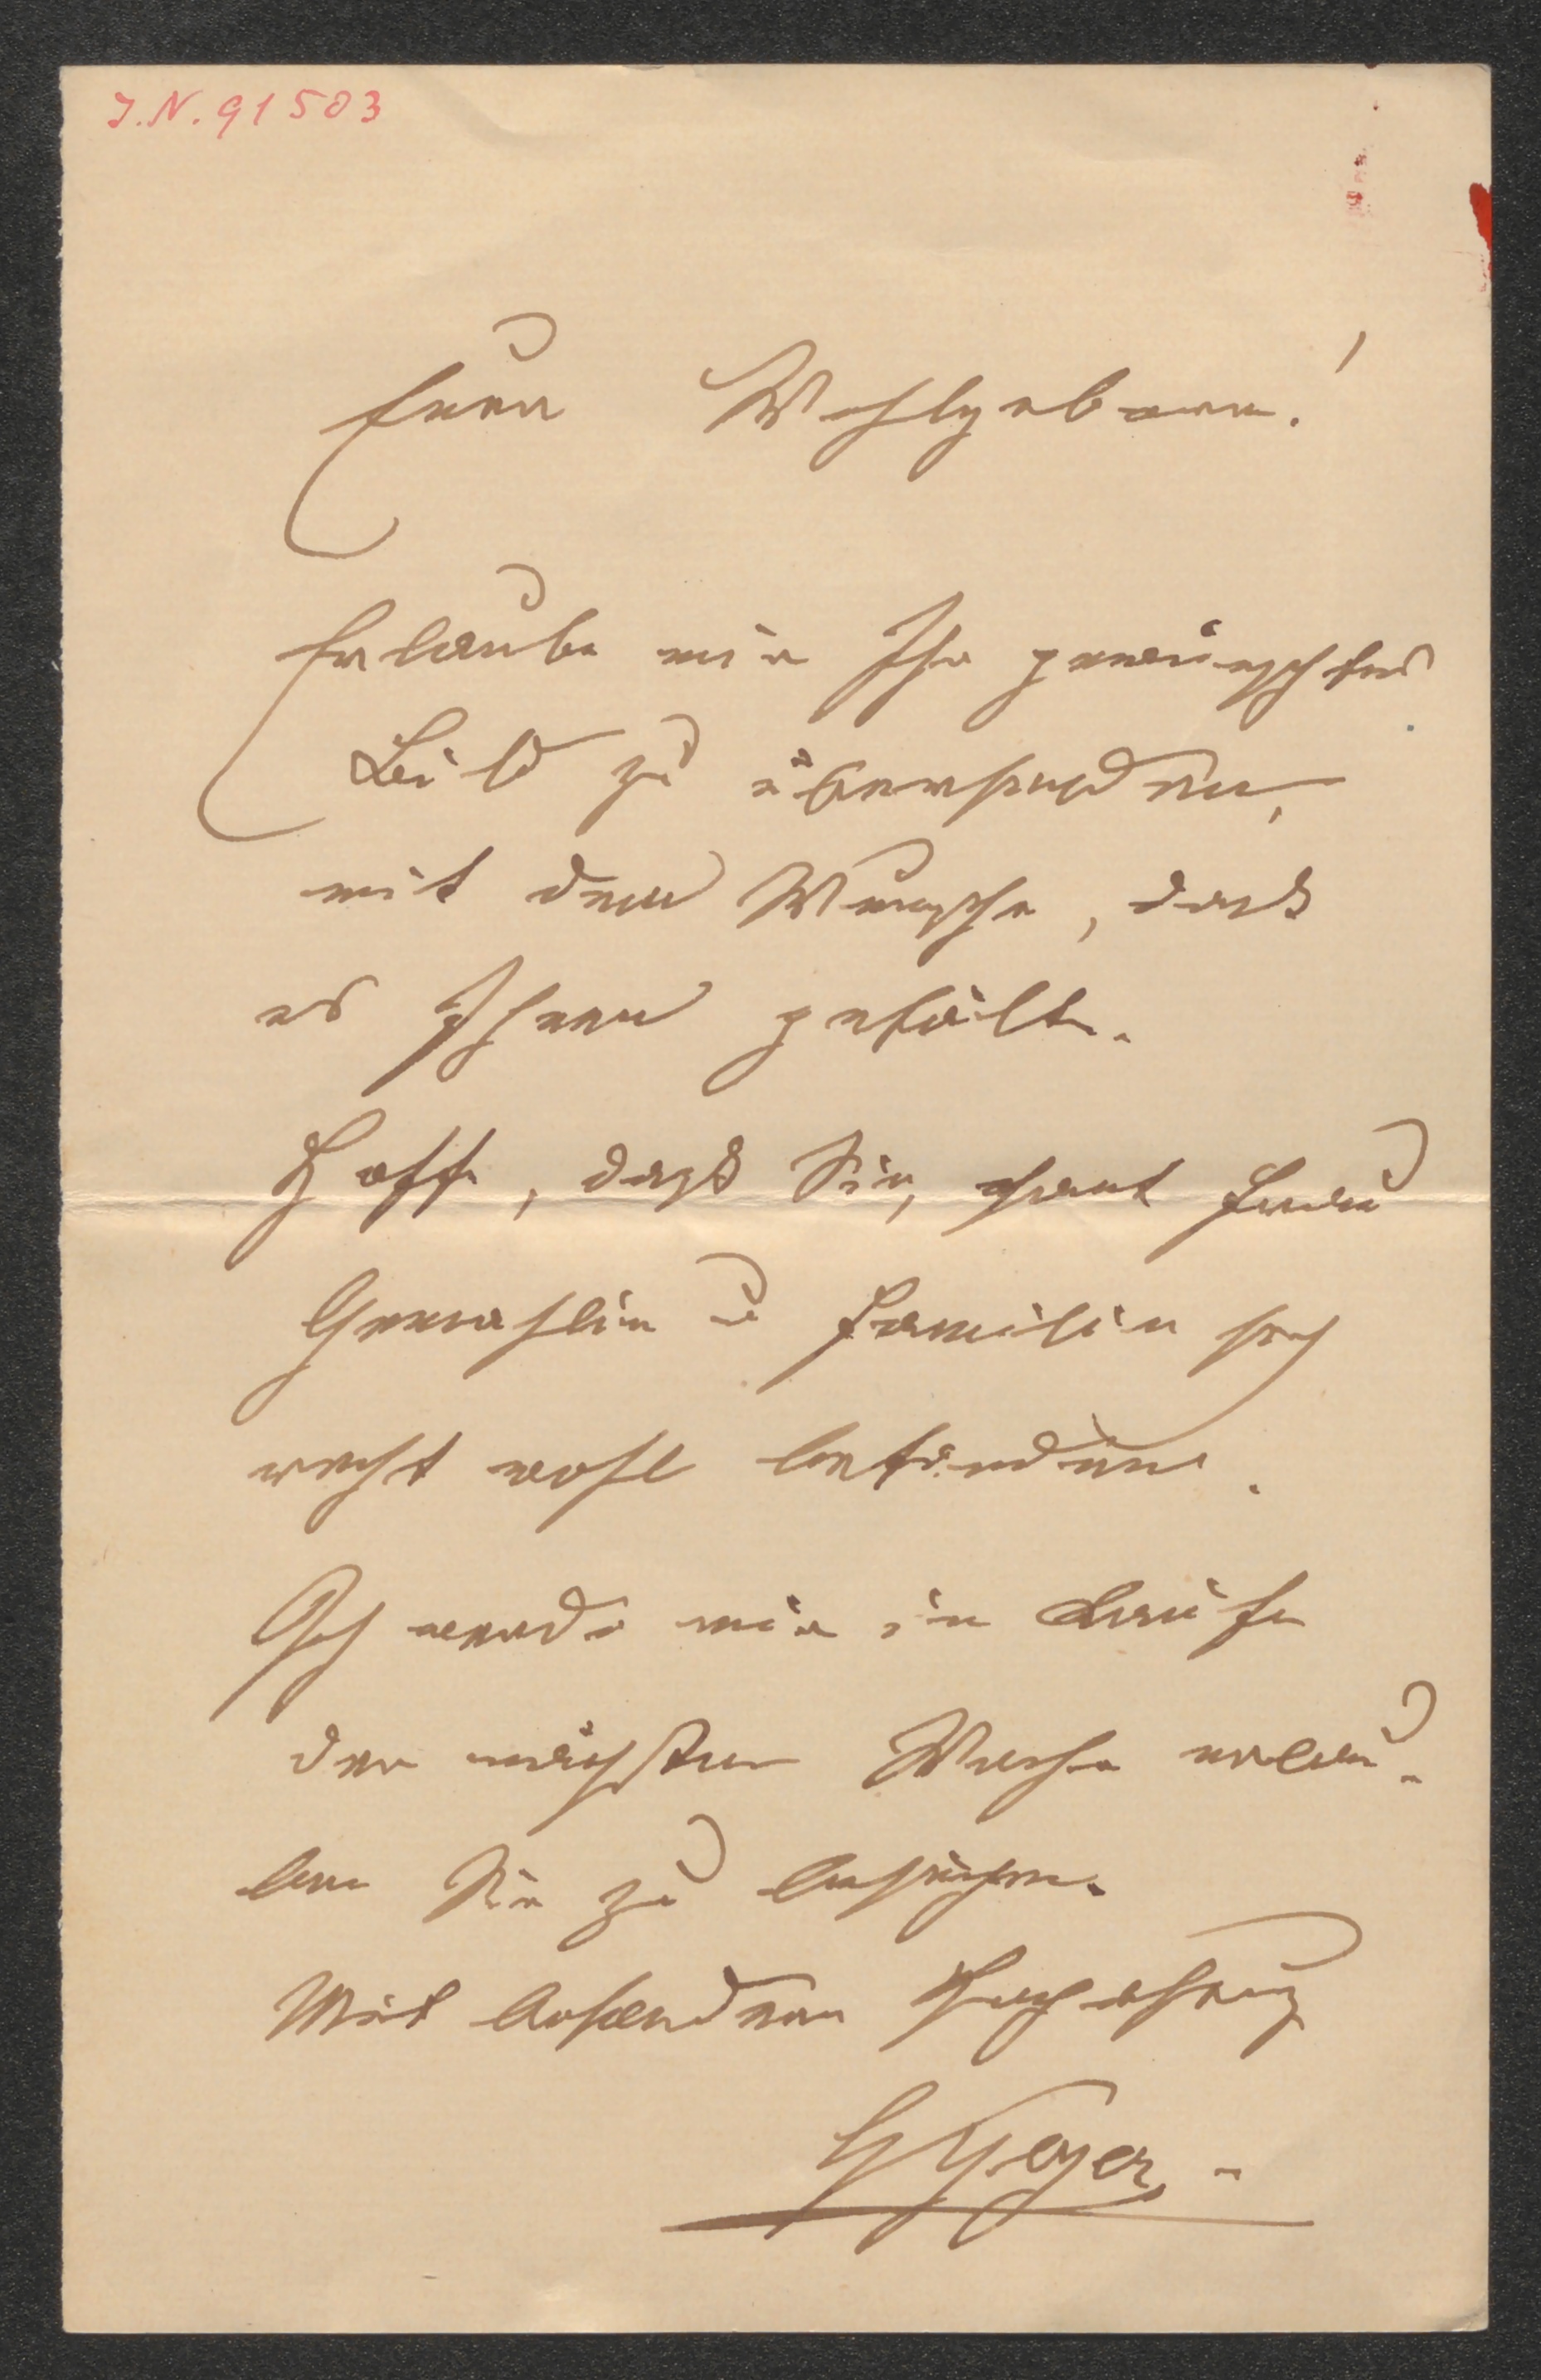 J.N. 91503
Euer Wohlgeboren!
Erlaube mir Ihr gewünschtes
Bild zu übersenden,
mit dem Wunsche, dass
es Ihnen gefällt.
Hoffe, dass Sie, samt Frau
Gemahlin u Familie sich
recht wohl befinden.
Ich werde mir im Laufe
der nächsten Woche erlau-
ben Sie zu besuchen.
Mit besonderer Hochachtung
Geyer